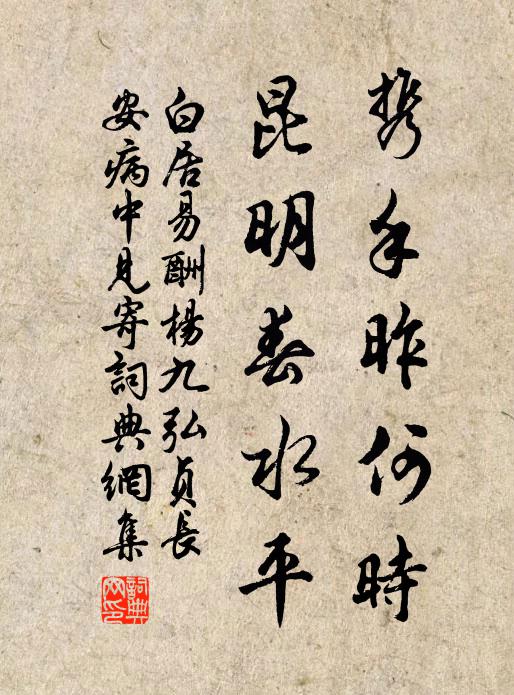 携手昨何時
昆明春水平
白居易酬楊九弘貞長
安病中見寄詞典網集
詞典網印